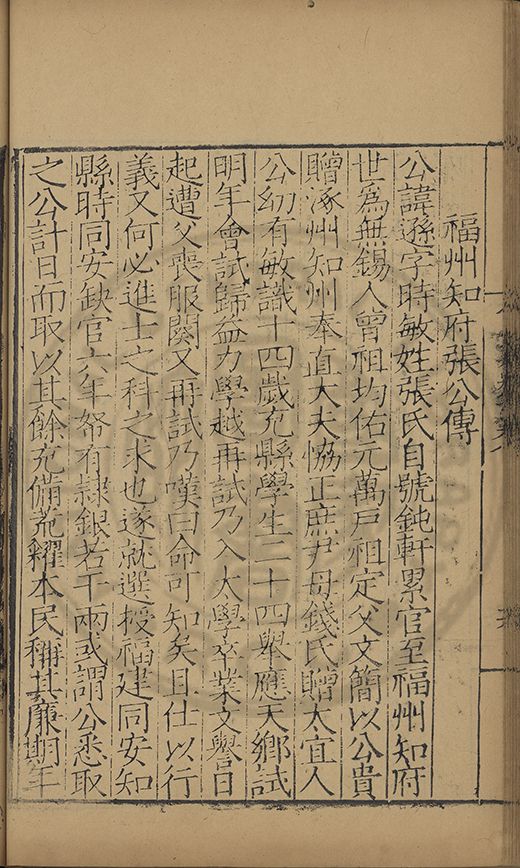 福州知府張公傳
公諱遜字時敏姓張氏自號鈍軒累官至福州知府
世爲無錫人曾祖均佑元萬戶祖定父文簡以公貴
贈涿州知州奉直大夫恊正庶尹母錢氏贈太宜人
公幼有敏識十四歲充縣學生二十四舉應天鄉試
明年會試歸益力學越再試乃入太學卒業文譽日
起遭父喪服闋又再試乃嘆曰命可知矣且仕以行
義又何必進士之科之求也遂就選授福建同安知
縣時同安缺官六年帑有隷銀若干兩或謂公悉取
之公計日而取以其餘充備荒糴本民稱其廉期年